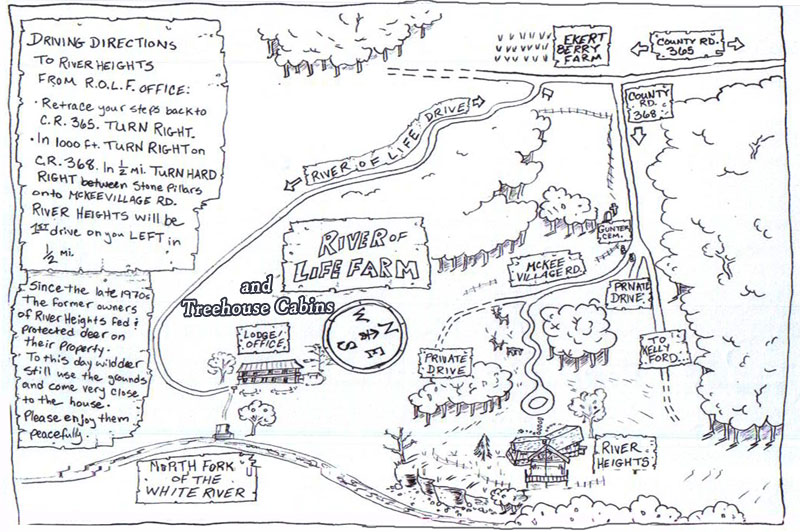 DRIVING DIRECTIONS
TO RIVER HEIGHTS
FROM R.O.L.F. OFFICE:
· Retrace your steps back to
C.R. 365. TURN RIGHT.
· In 1000 Ft. TURN RIGHT on
C.R. 368. In 1/2 Mi. TURN HARD
RIGHT between Stone Pillars
onto McKEE VILLAGE RD.
RIVER HEIGHTS will be
1ST drive on you LEFT in
1/2 mi.
Since the late 1970s
The Former owners
of River Heights Fed &
protected deer on
their Property.
To this day wild deer
still use the grounds
and come very close
to the house.
Please enjoy them
peacefully.
EKERT
BERRY
FARM
COUNTY RD.
365
COUNTY
RD.
368
RIVER OF LIFE DRIVE
RIVER OF LIFE DRIVE
RIVER OF
LIFE FARM
and
Treehouse Cabins
GUNTER
CEM.
McKEE
VILLAGE RD.
PRIVATE
DRIVE
N
E
S
W
LODGE/
OFFICE
PRIVATE
DRIVE
TO
KELLY
FORD
RIVER
HEIGHTS
NORTH FORK
OF THE
WHITE RIVER